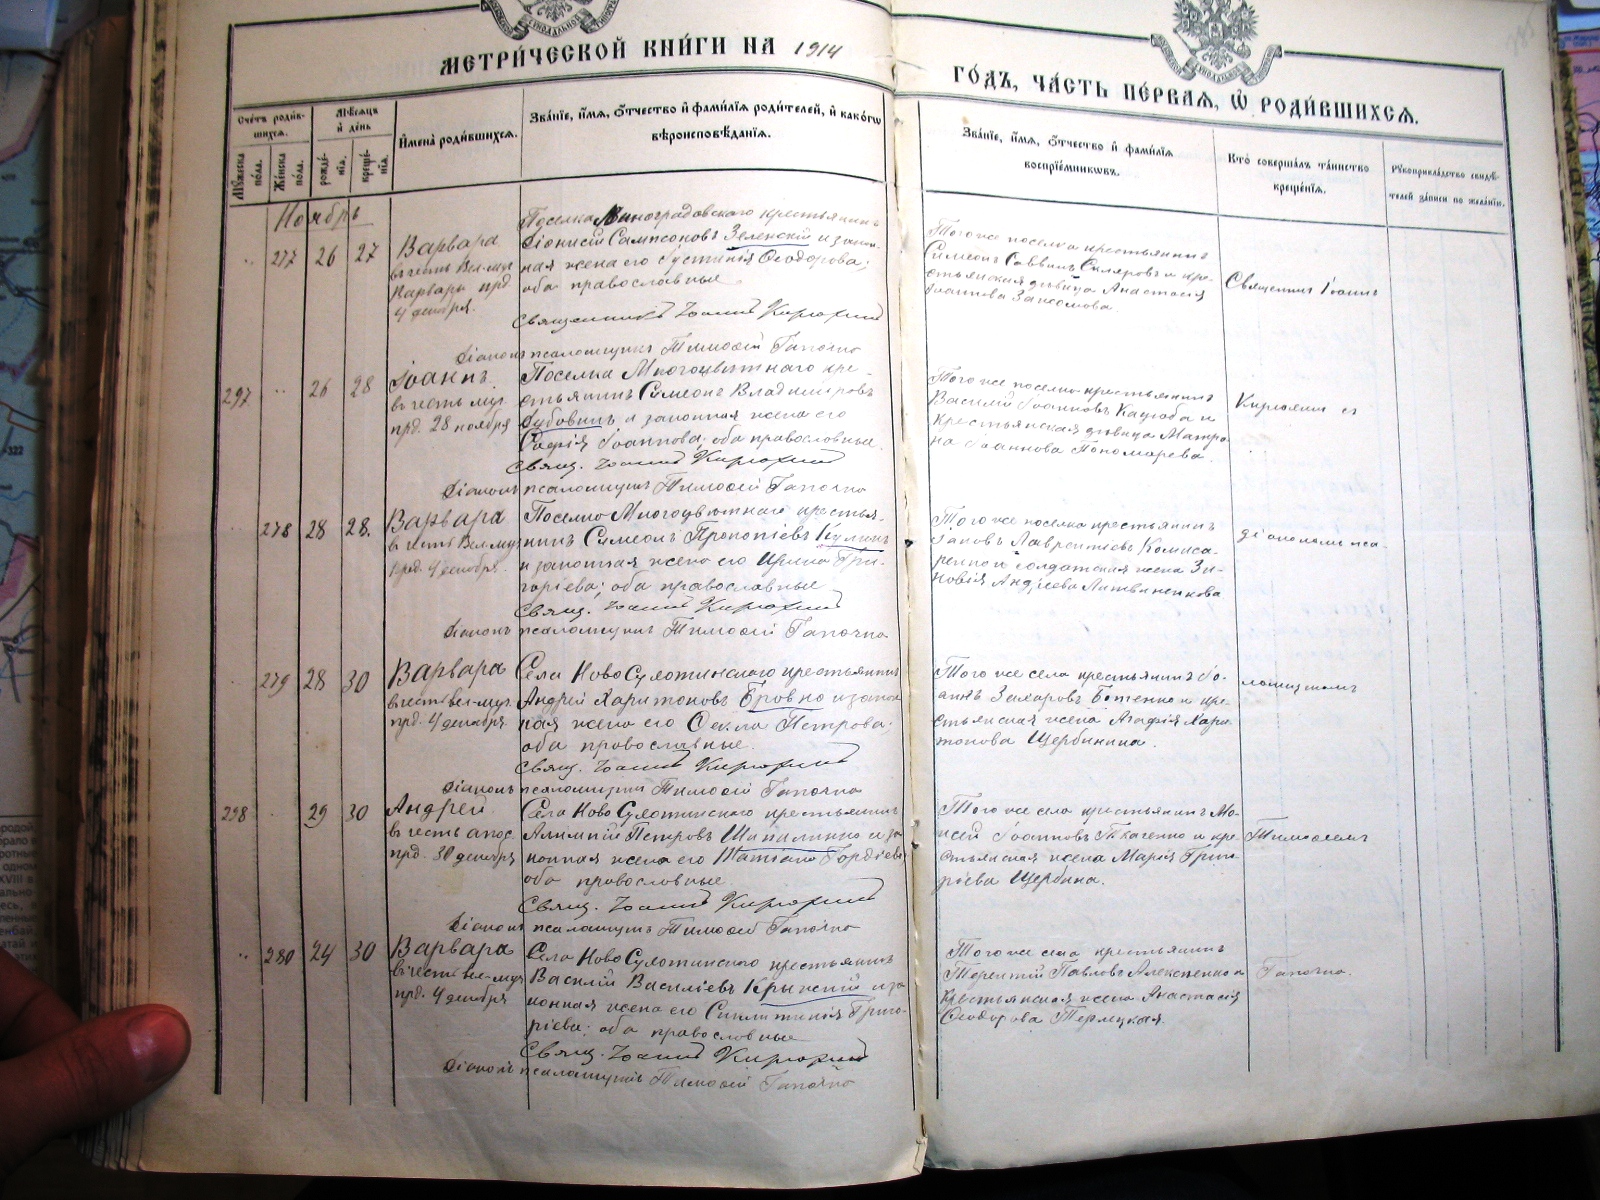 МЕТРИ́ЧЕСКОЙ КНИ́ГИ НА 1914
ГО́ДЪ, ЧА́СТЬ ПЕ́РВАЯ, Ѡ҆ РОДИ́ВШИХСЯ.
Сче́тъ роди́в-
шихся.
Му́жеска по́ла.
Же́нска по́ла.
Мѣ́сяцъ
и҆ де́нь
рожде́-
нїя.
креще́-
нїя.
И҆мена̀ роди́вшихся.
Зва́нїе, и҆́мя, ѻ҆́тчество и҆ фами́лїя роди́телей, и҆ како́гѡ
вѣроисповѣ́данїя.
Зва́нїе, и҆́мя, ѻ҆́тчество и҆ фами́лїя
воспрїе́мникѡвъ.
Кто̀ соверша́лъ та́инство
креще́нїя.
Рꙋкоприкла́дство свидѣ́-
телей за́писи по жела́нїю.
Ноябрь
277 26 27
Варвара
въ честь Вел-муч.
Варвары прд
4 декабря.
Поселка Виноградовскаго крестьянинъ
Діонисій Сампсоновъ Зеленскій и закон-
ная жена его Іустинія Ѳеодорова;
оба православные
Священникъ Іоаннъ
Діаконъ псаломщикъ Тимоѳей Гапочка
Того же поселка крестьянинъ
Симеонъ Саввинъ Скляровъ и кре-
стьянская дѣвица Анастасія
Священник Іоанн
297 " 26 28
Іоаннъ
въ честь муч.
прд. 28 ноября
Поселка Многоцвѣтнаго кре-
стьянинъ Симеонъ Владиміровъ
Дубовикъ и законная жена его
Софія Іоаннова; оба православные.
Свящ. Іоаннъ
Діаконъ псаломщикъ Тимоѳей Гапочка
Того же поселка крестьянинъ
Василій Іоанновъ Кацюба и
крестьянская дѣвица Матро-
на Іоаннова Пономарева.
278 28 28.
Варвара
въ честь Вел-муч
прд. 4 декабря.
Поселка Многоцвѣтнаго крестья-
нинъ Симеонъ Прокопіевъ Куликъ
и законная жена его Ирина Гри-
горіева; оба православные
Свящ. Іоаннъ
Діаконъ псаломщикъ Тимоѳей Гапочка
Того же поселка крестьянинъ
Іаковъ Лаврентіевъ Комиса-
ренко и солдатская жена Зи-
новія Андреева Литвиненкова
діакономъ пса-
279 28 30
Варвара
въ честь вел-муч.
прд. 4 декабря
Села НовоСухотинскаго крестьянинъ
Андрей Харитоновъ Бровко и закон
ная жена его Ѳекла Петрова;
оба православные.
Свящ. Іоаннъ
Діаконъ псаломщикъ Тимоѳей Гапочка
Того же села крестьянинъ Іо-
аннъ Захаровъ Батенко и кре-
стьянская жена Агафія Хари-
тонова Щербинина.
ломщикомъ
298 29 30
Андрей
въ честь апос.
прд. 30 декабря
Села НовоСухотинскаго крестьянинъ
Алимпій Петровъ Шапилинко и за
конная жена его Татіана Гордіева
оба православные
Свящ. Іоаннъ
Діаконъ псаломщикъ Тимоѳей Гапочка
Того же села крестьянинъ Мо-
исей Іоанновъ Ткаченко и кре-
стьянская жена Марія Григо-
ріева Щербина.
Тимоѳеемъ
" 280 24 30
Варвара
въ честь вел-муч
прд. 4 декабря
Села НовоСухотинскаго крестьянинъ
Василій Василіевъ Крынскій и за
конная жена его Синклитикія Григо-
ріева; оба православные
Свящ. Іоаннъ
Діаконъ псаломщикъ Тимоѳей Гапочка
Того же села крестьянинъ
Терентій Павловъ Алексеенко и
крестьянская жена Анастасія
Ѳеодорова Терлецкая.
Гапочка.